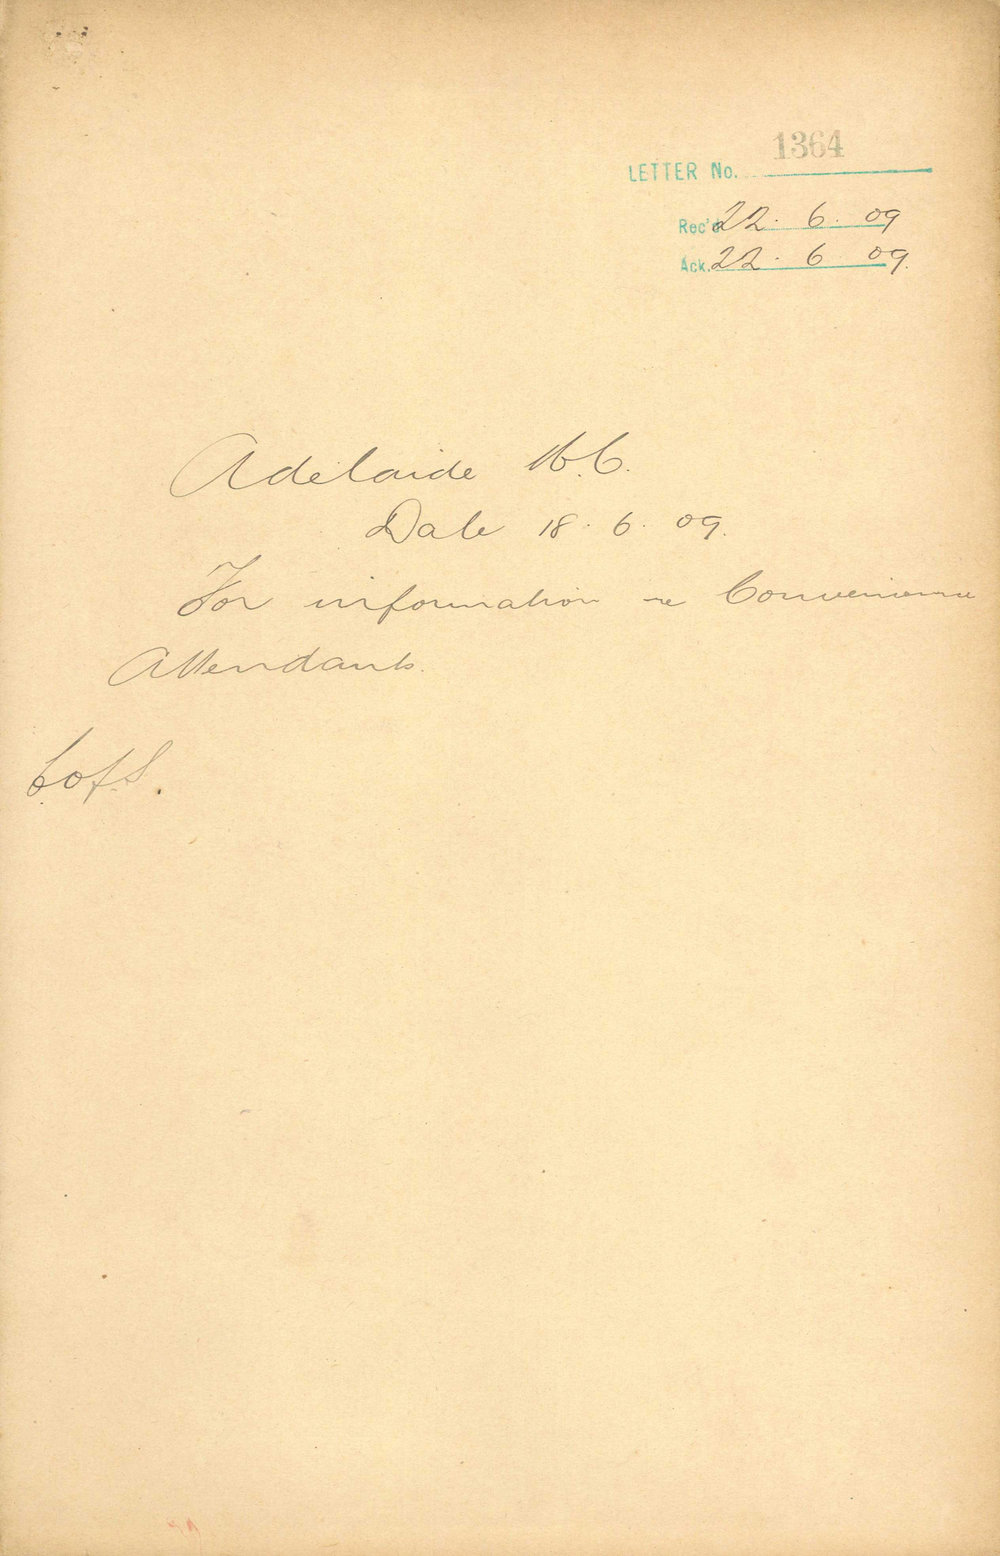 1364
LETTER No.
Rec'd 22. 6. 09
Ack. 22. 6 09.
Adelaide
Date 18. 6. 09.
For information re Convenience
Attendants.
C of S.